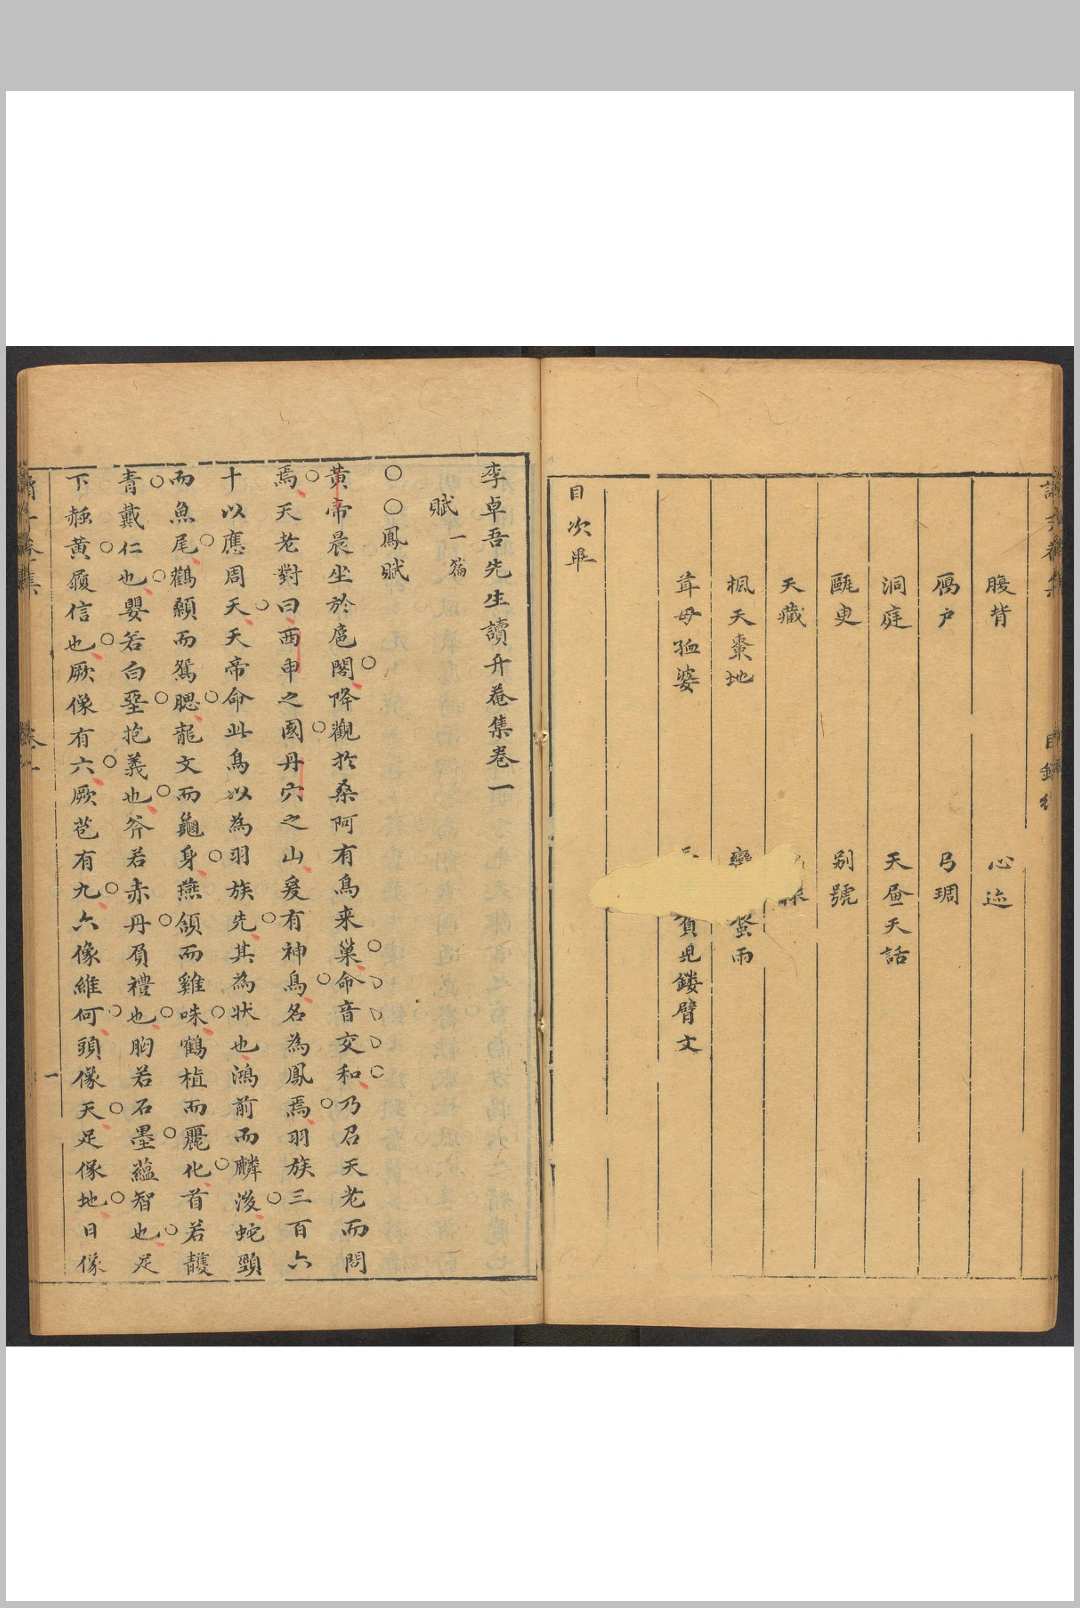 腹背
心迹
鴈户
弓琱
洞庭
天㫼天話
甌㕝
别號
天藏
楓天棗地
蚕雨
茸母孤婆
負児鏤臂文
目次畢
李卓吾先生讀升菴集卷一
賦一篇
○○鳳賦
黃帝晨坐於扈閣降觀扵桑阿有鳥来巢命音交和乃召天老而問
焉天老對曰西申之國丹穴之山爰有神鳥名為鳳焉羽族三百六
十以應周天天帝命此鳥以為羽族先其為状也鴻前而麟後蛇頸
而魚尾鸛顙而鴛腮龍文而龜身燕頷而雞咮鶴植而麗化首若
青戴仁也嬰若白堊抱義也斧若赤丹負禮也胸若石墨蘊智也足
下𦂶黃履信也厥像有六厥苞有九六像維何頭像天足像地日像
一